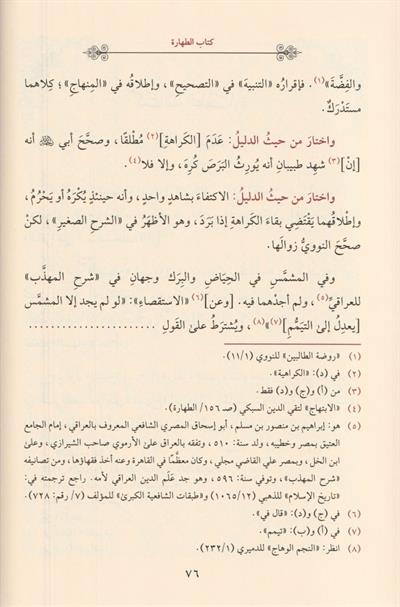 كتاب الطهارة
والفِضَّة»(١). فإقرارُه «التنبيهَ» في «التصحيح»، وإطلاقُه في «المِنهاجِ»؛ كِلاهما
مستَدْرَكٌ.
واختارَ من حيثُ الدليلُ: عَدَمَ [الكراهةِ](٢) مُطْلقًا، وصحَّحَ أبي ﷺ أنه
[إنْ](٣) شهِد طبيبانِ أنه يُورِثُ البَرَصَ كُرِهَ، وإلا فلا(٤).
واختارَ من حيثُ الدليلُ: الاكتفاءَ بشاهدٍ واحدٍ، وأنه حينئذٍ يُكْرَهُ أو يَحْرُمُ،
وإطلاقُهما يَقْتَضِي بقاءَ الكَراهةِ إذا بَرَدَ، وهو الأظهَرُ في «الشرحِ الصغيرِ»، لكنْ
صحَّحَ النوويُّ زوالَها.
وفي المشمَّسِ في الحِيَاضِ والبِرَك وجهانِ في «شرح المهذَّب»
للعراقيِّ(٥)، ولم أجدْهما فيه. [وعن](٦) «الاستقصاءِ»: «لو لم يجد إلا المشمَّس
[يعدِلُ إلىٰ التيَمُّمِ](٧)»(٨)، ويُشترَطُ علىٰ القَولِ
(١) «روضة الطالبين» للنووي (١١/١).
(٢) في (د): «الكراهية».
(٣) من (أ) و(ج) و(د) فقط.
(٤) «الابتهاج» لتقي الدين السبكي (صـ ١٥٦/ الطهارة).
(٥) هو: إبراهيم بن منصور بن مسلم، أبو إسحاق المصري الشافعي المعروف بالعراقي، إمام الجامع
العتيق بمصر وخطيبه، ولد سنة: ٥١٠، وتفقه بالعراق علىٰ الأرموي صاحب الشيرازي، وعلىٰ
ابن الخل، وبمصر علي القاضي مجلي، وكان معظَّمًا في القاهرة وعنه أخذ فقهاؤها، ومن تصانيفه
«شرح المهذب»، وتوفي سنة: ٥٩٦، وهو جد عَلَم الدين العراقي لأمه. راجع ترجمته في:
«تاريخ الإسلام» للذهبي (١٠٦٥/١٢) و«طبقات الشافعية الكبرىٰ» للمؤلف (٧/ رقم: ٧٢٨).
(٦) في (ج) و(د): «قال في».
(٧) في (أ) و(ب): «تيمم».
(٨) انظر: «النجم الوهاج» للدميري (٢٣٢/١).
٧٦